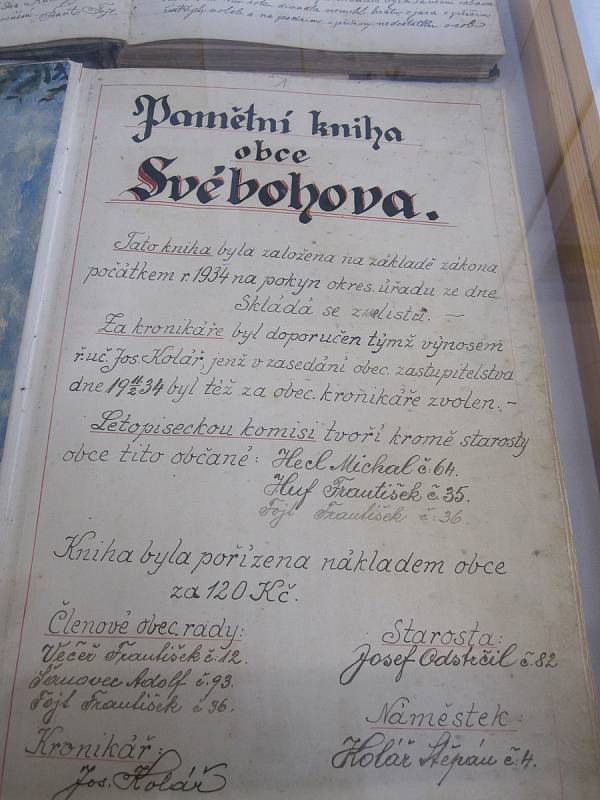 1
Pamětní kniha
obce
Svébohova.
Tato kniha byla založena na základě zákona
počátkem r. 1934 na pokyn okres. úřadu ze dne
Skládá se z listů. —
Za kronikáře byl doporučen týmž výnosem
ř. uč. Jos. Kolář, jenž v zasedání obec. zastupitelstva
dne 19 11/2 34 byl též za obec. kronikáře zvolen. —
Letopiseckou komisi tvoří kromě starosty
obce tito občané: Hecl Michal č. 64.
Huf František č. 35.
Fojl František č. 36.
Kniha byla pořízena nákladem obce
za 120 Kč.
Členové obec. rady:
Večeř František č. 12.
Adolf č. 93.
Fojl František č. 36.
Kronikář:
Jos. Kolář
Starosta:
Josef Odstrčil č. 82
Náměstek:
Kolář Štěpán č. 4.